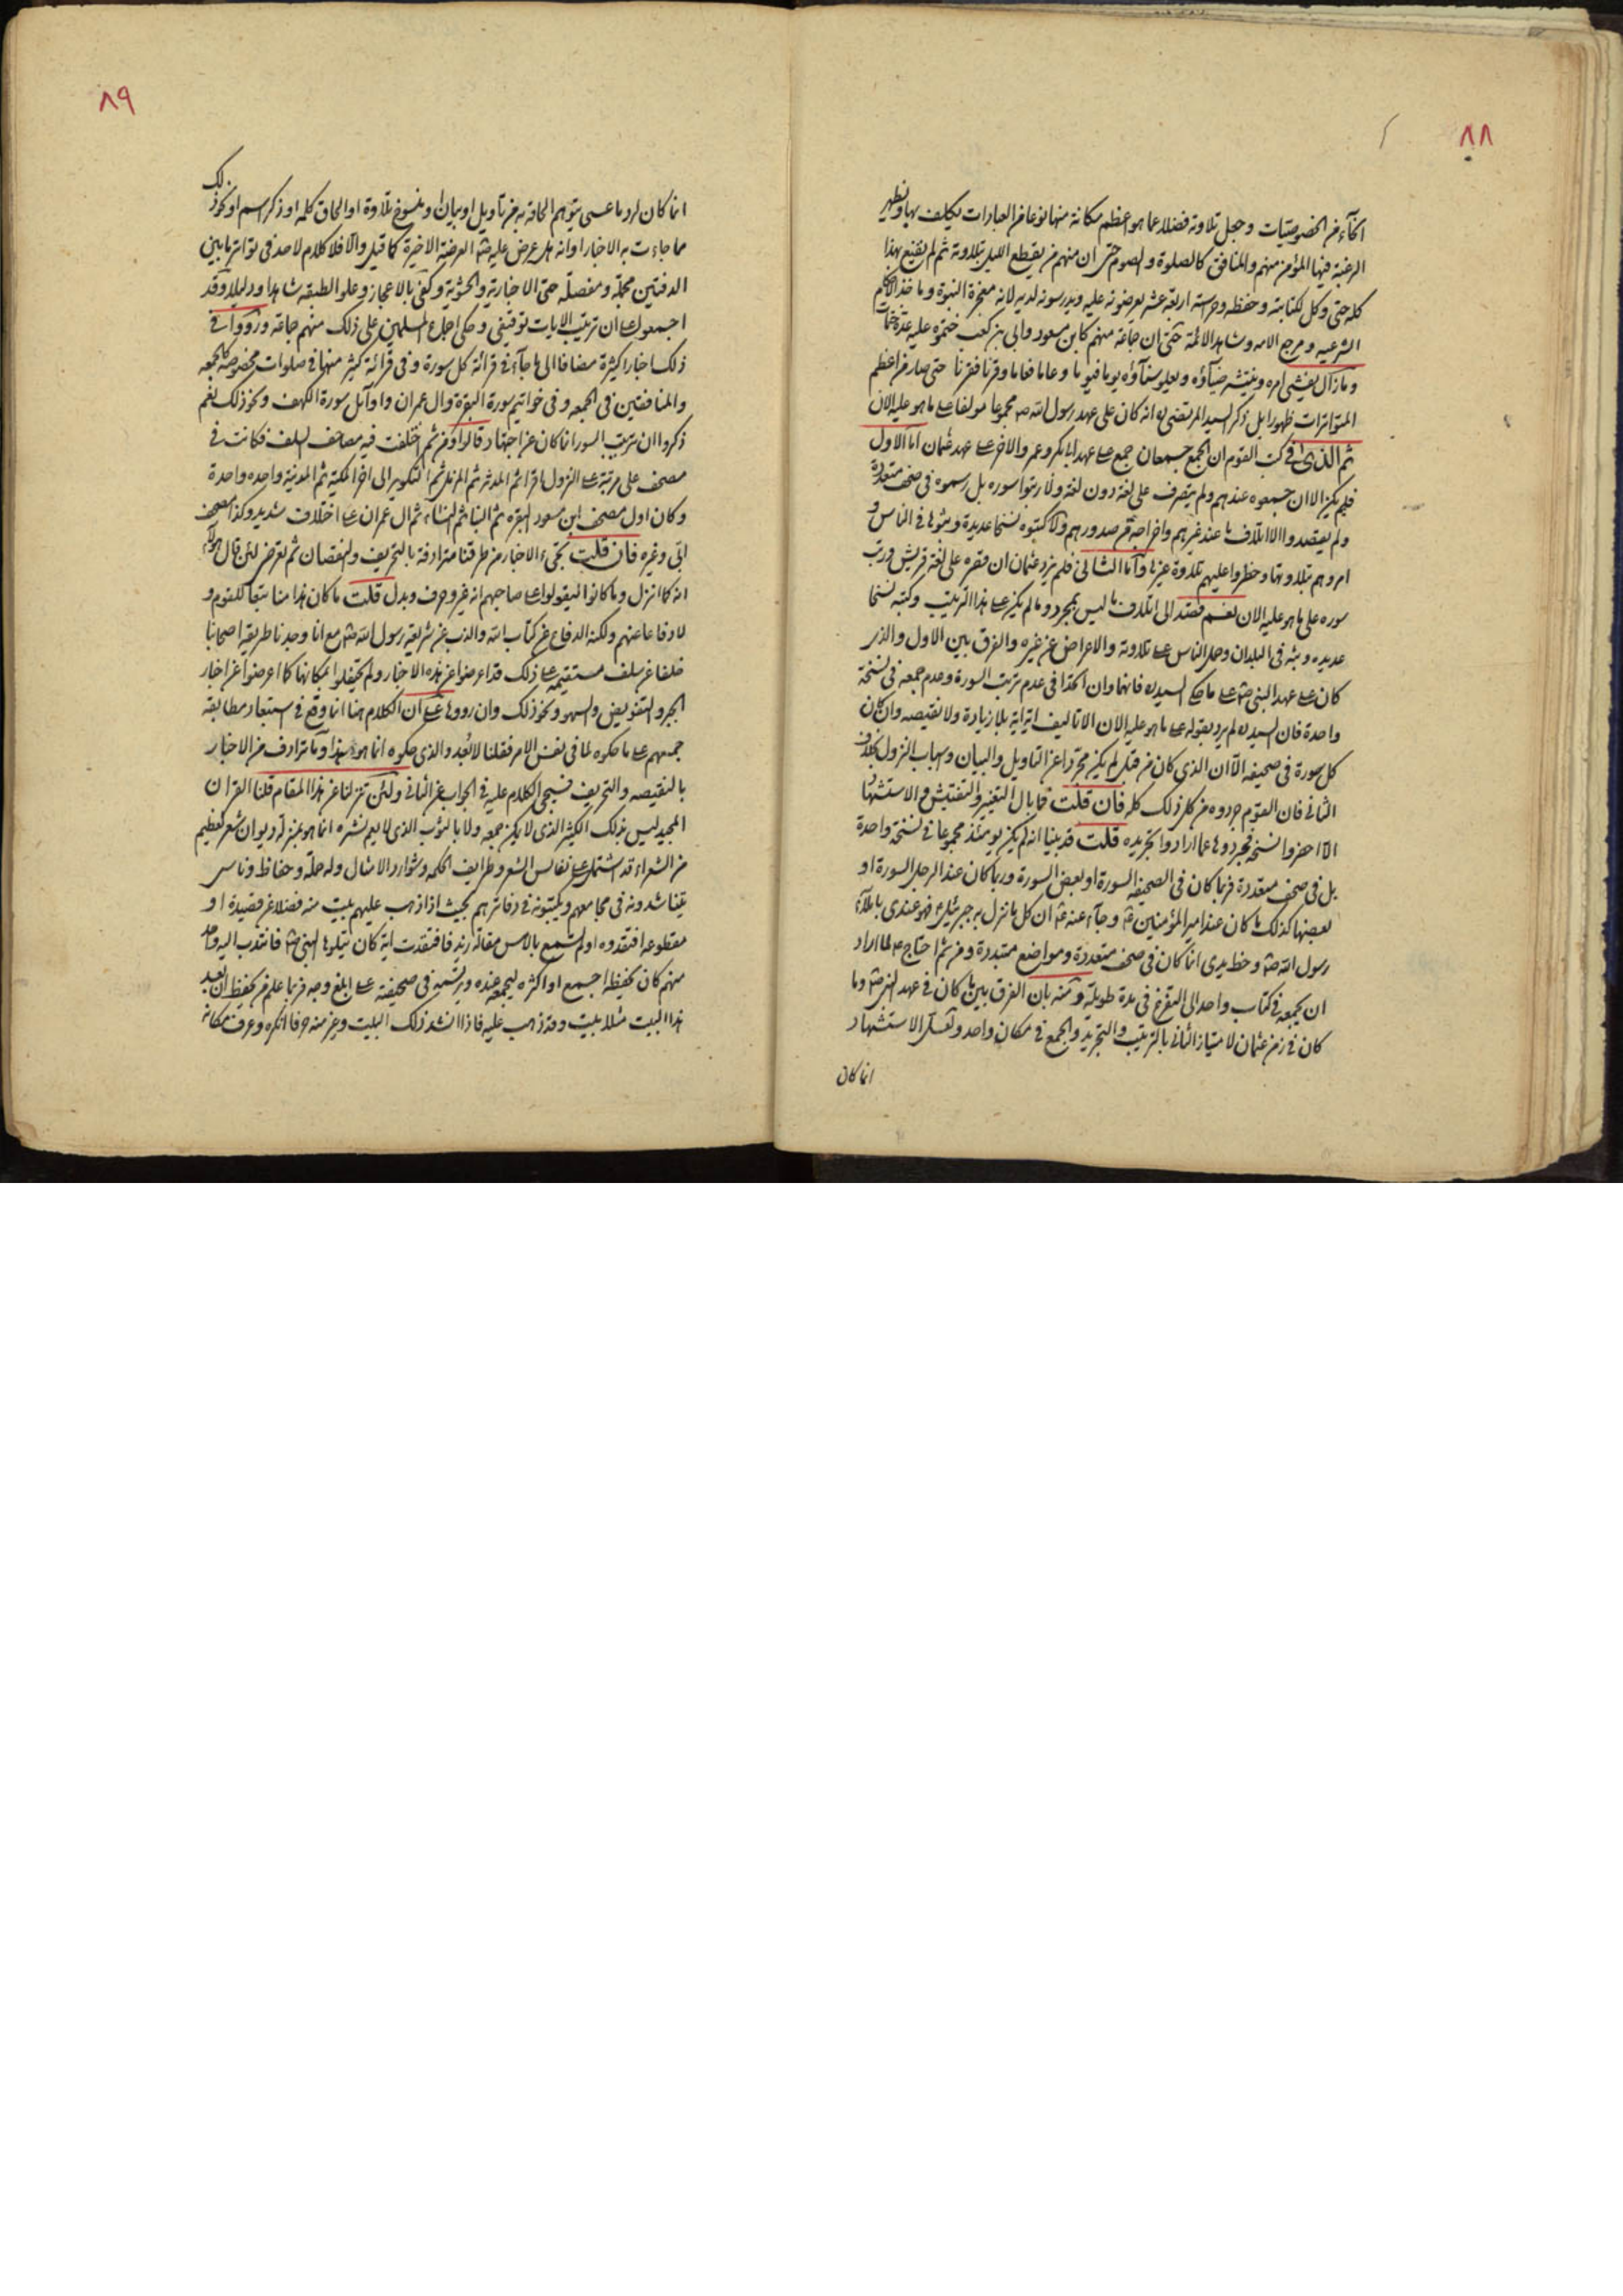 ٨٨
انحآء من الخصوصيات وجعل تلاوته فضلا عما هو اعظم مكانة منها نوعا من العبادات يكلف بها ويظهر
الرغبة فيها المؤمن منهم والمنافق كالصلوة والصوم حتى ان منهم من يقطع الليل بتلاوته ثم لم يقنع بهذا
كله حتى وكل لكتابته وحفظه وحراسته اربعة عشر يعرضونه عليه ويدرسونه لديه لانه معجزة النبوة وماخذ الاحكام
الشرعيه ومرجع الامه وشاهد الائمة حتى ان جماعة منهم كابن مسعود وابي بن كعب ختموه عليه عدة ختمات
وما زال يفشى امره وينتشر ضيآؤه ويعلو سنآؤه يوما فيوما وعاما فعاما وقرنا فقرنا حتى صار من اعظم
المتواترات ظهورا بل ذكر السيد المرتضى ره انه كان على عهد رسول الله ص مجموعا مولفا على ما هو عليه الان
ثم الذي في كتب القوم ان الجمع جمعان جمع على عهد ابي بكر وعمر والاخر على عهد عثمان اما الاول
فلم يكن الا ان جمعوه عندهم ولم يقصر على لغة دون لغة ولا رتبوا سوره بل رسموه في صحف متعددة
ولم يقصدوا الا ائتلاف ما عند غيرهم واخراجه من صدورهم ولا كتبوه نسخا عديدة وبثوها في الناس و
امروهم بتلاوتها وحظروا عليهم تلاوة غيرها وأما الثاني فلم يزد عثمان ان قصره على لغة قريش ورتب
سوره على ما هو عليه الان نعم قصد الى ائتلاف ما ليس بمجرد وما لم يكن على هذا الترتيب وكتبه نسخا
عديده وبثه في البلدان وحمل الناس على تلاوته والاعراض عن غيره والفرق بين الاول والذي
كان على عهد النبي ص على ما حكى السيد ره فانهما وان اتحدا في عدم ترتيب السورة وعدم جمعه في نسخة
واحدة فان السيد ره لم يرد بقوله على ما هو عليه الان الا تاليف اية اية بلا زيادة ولا نقيصه وان كان
كل سورة في صحيفه الا ان الذي كان من قبل لم يكن مجردا عن التاويل والبيان واسباب النزول بخلاف
الثاني فان القوم جردوه من كل ذلك كله فان قلت فما بال التغيير والتفتيش والاستشهاد
الا احضروا نسخه فجردوها عما ارادوا تجريده قلت قد بينا انه لم يكن يومئذ مجموعا في نسخة واحدة
بل في صحف متعددة فربما كان في الصحيفه السورة او بعض السورة وربما كان عند الرجل السورة او
بعضها كذلك ما كان عند امير المؤمنين ع وجآء عنه ع ان كل ما نزل به جبرئيل ع فهو عندي باملآء
رسول الله ص وخط يدي انما كان في صحف متعددة ومواضع متبددة ومن ثم احتاج ع لما اراد
ان يجمعه في كتاب واحد الى التفرغ في مدة طويلة ومنه بان الفرق بين ما كان في عهد النبي ص وما
كان في زمن عثمان لامتياز الثاني بالترتيب والتجريد والجمع في مكان واحد ولعل الاستشهاد
انما كان
٨٩
انما كان لرد ما عسى يتوهم الحاقه به من تاويل او بيان او منسوخ تلاوة او الحاق كلمه او ذكر اسم او نحو ذلك
مما جاءت به الاخبار او انه هل عرض عليه ص العرضة الاخيرة كما قيل والا فلا كلام لاحد في تواتر ما بين
الدفتين مجملة ومفصله حتى الاخبارية والحشوية وكفى بالاعجاز وعلو الطبقه شاهدا ودليلا وقد
اجمعوا على ان ترتيب الايات توقيفي وحكى اجماع المسلمين على ذلك منهم جماعة ورووا في
ذلك اخبارا كثيرة مضافا الى ما جآء في قرائة كل سورة وفي قرائة كثير منها في صلوات مخصوصة كالجمعه
والمنافقين في الجمعه وفي خواتيم سورة البقرة وال عمران واوآئل سورة الكهف ونحو ذلك نعم
ذكروا ان ترتيب السور انما كان عن اجتهاد قالوا ومن ثم اختلفت فيه مصاحف السلف فكانت في
مصحف علي مرتبة على النزول اقرا ثم المدثر ثم المزمل ثم التكوير الى اخر المكية ثم المدنية واحده واحدة
وكان اول مصحف ابن مسعود البقره ثم النسا ثم ال عمران على اختلاف شديد وكذا مصحف
ابي وغيره فان قلت تجىء الاخبار من طرقنا مترادفة بالتحريف والنقصان ثم تعرض لئن قال هولآء
انه كما انزل وما كانوا ليقولوا على صاحبهم انه غير وحرف وبدل قلت ما كان هذا منا تبعا للقوم و
لا دفاعا عنهم ولكنه الدفاع عن كتاب الله والذب عن شريعة رسول الله ص مع انا وجدنا طريقة اصحابنا
خلفا عن سلف مستقيمة على ذلك قد اعرضوا عن هذه الاخبار ولم يحتفلوا بمكانها كما اعرضوا عن اخبار
الجبر والتفويض والسهو ونحو ذلك وان رووها على ان الكلام هنا انما وقع في استبعاد مطابقه
جمعهم على ما حكوه لما في نفس الامر فقلنا لا بعد والذي حكوه انما هو هذا وما ترادف من الاخبار
بالنقيصه والتحريف فسيجئ الكلام عليه في الجواب عن الثاني ولئن تنزلنا عن هذا المقام قلنا القران
المجيد ليس بذلك الكثير الذي لا يمكن جمعه ولا بالنوب الذي لا يعم نشره انما هو بمنزلة ديوان شعر لعظيم
من الشعراء قد اشتمل على نفائس الشعر وطرايف الحكمه وشوارد الامثال وله حملة وحفاظ وناس
يتناشدونه في مجامعهم ويكتبونه في دفاترهم بحيث اذا ذهب عليهم بيت منه فضلا عن قصيدة او
مقطوعه افتقدوه اولم تسمع بالامس مقالة زيد فافتقدت اية كان يتلوها النبي ص فانتدب اليه واحد
منهم كان يحفظه اجمع او اكثره ليجمعه عنده ويرتسمه في صحيفته على ابلغ وجه فربما علم من يحفظ ان بعد
هذا البيت مثلا بيت وقد ذهب عليه فاذا انشد ذلك البيت وغير منه حرفا انكره وعرف مكانه